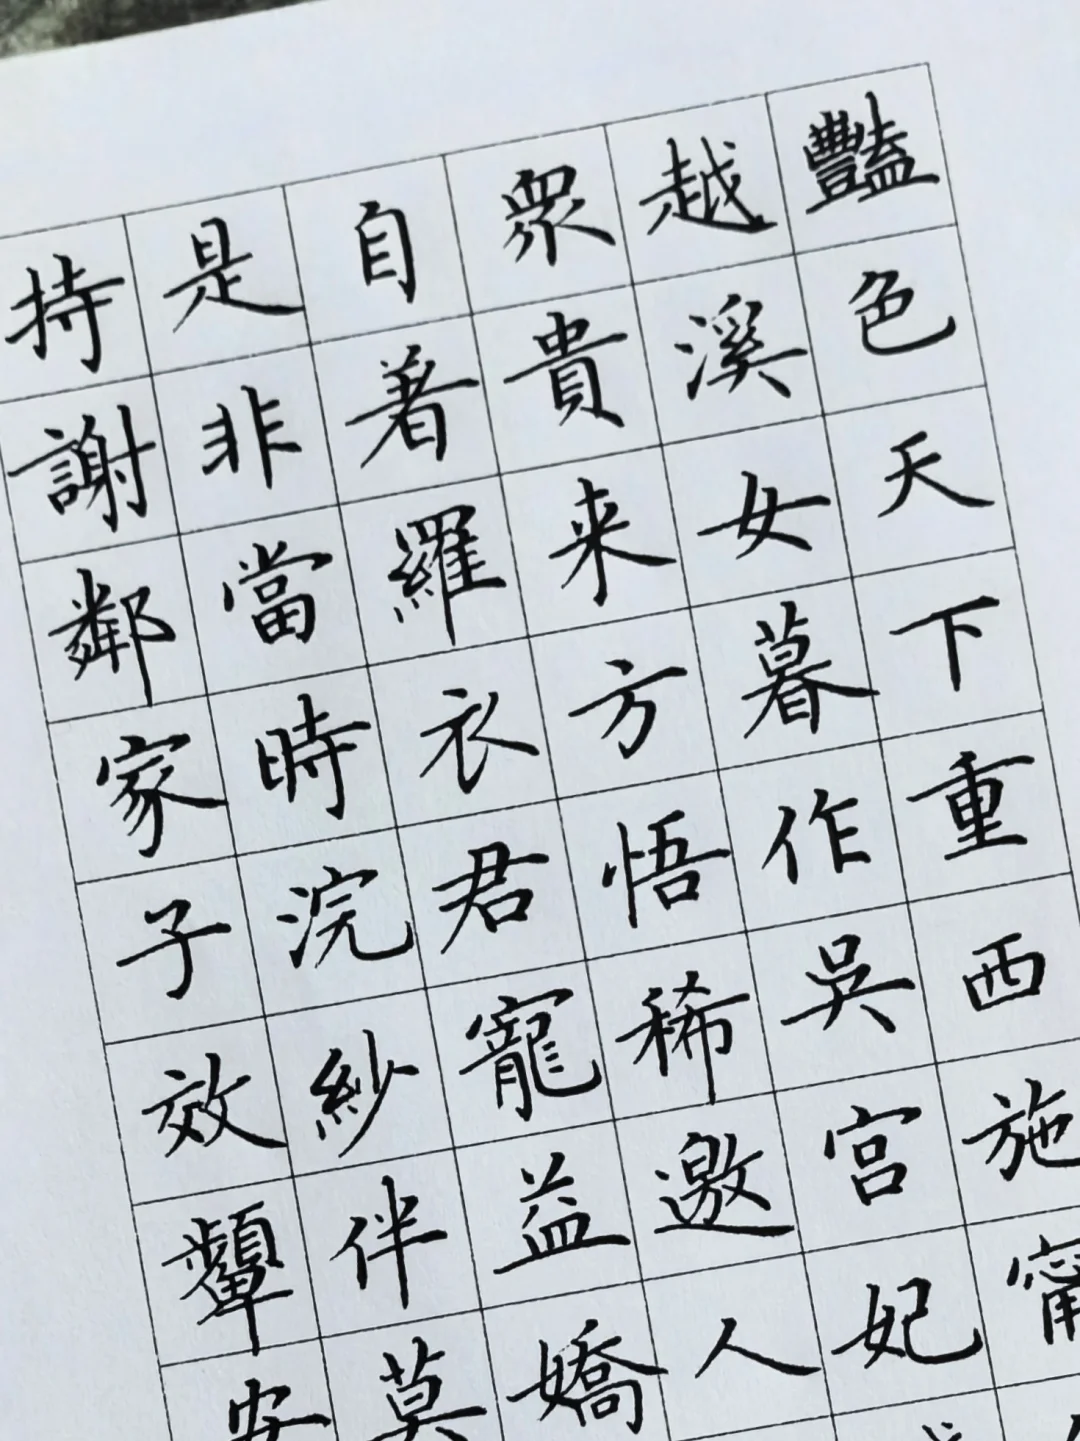 豔色天下重西施
越溪女暮作吳宮妃
眾貴来方悟稀邀人
自著羅衣君寵益嬌
是非當時浣紗伴莫
持謝鄰家子效顰安